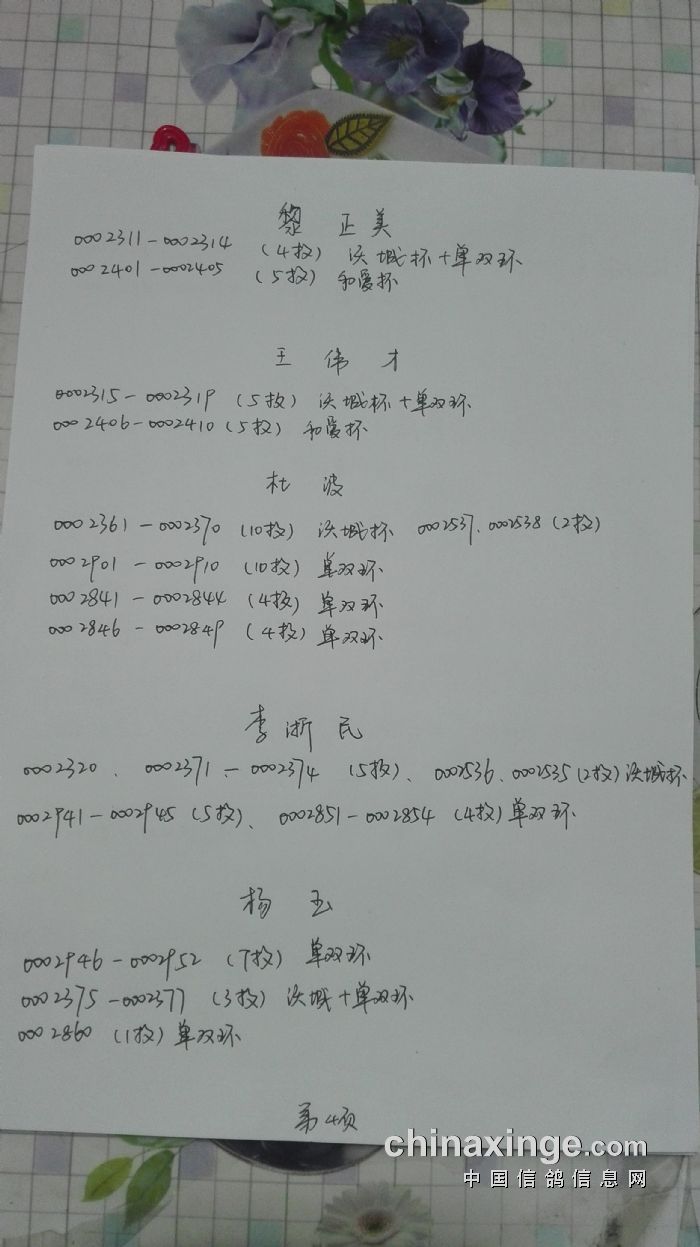 黎 正 美
0002311-0002314 (4投) 汉城杯+单双环
0002401-0002405 (5投) 和爱杯
王 伟 才
0002315-0002319 (5枚) 汉城杯+单双环
0002406-0002410 (5枚) 和爱杯
杜 波
0002361-0002370 (10枚) 汉城杯 0002537、0002538 (2枚)
0002901-0002910 (10枚) 单双环
0002841-0002844 (4枚) 单双环
0002846-0002849 (4枚) 单双环
李 浙 民
0002320、0002371-0002374 (5枚)、0002536、0002535 (2枚) 汉城杯
0002941-0002945 (5枚)、0002851-0002854 (4枚) 单双环
杨 玉
0002946-0002952 (7枚) 单双环
0002375-0002377 (3枚) 汉城+单双环
0002860 (1枚) 单双环
第4页
chinaxinge.com
中国信鸽信息网